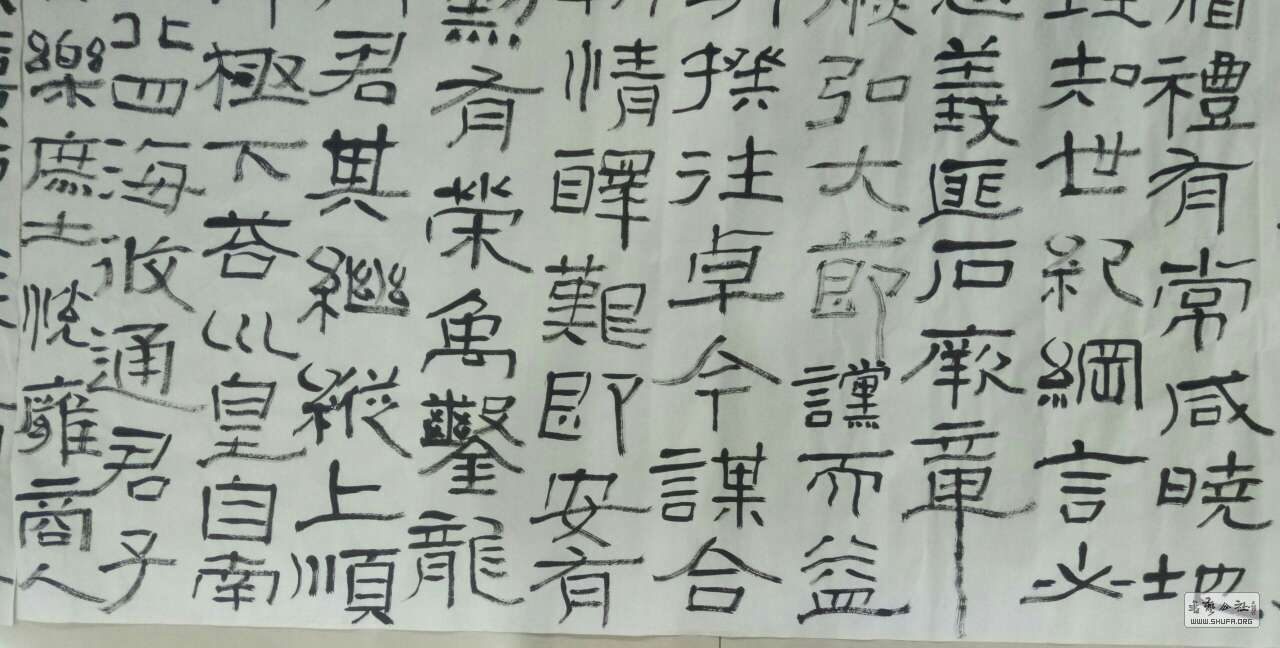 禮有常咸曉地
理知世紀綱言必
義匪石厥章
弘大節讜而益
揆往卓今謀合
情醳艱即安有
勲有榮禹鑿龍
君其繼縱上順
極下荅巛皇自南
北四海攸通君子
樂庶士悅雍商人
WWW.SHUFA.ORG